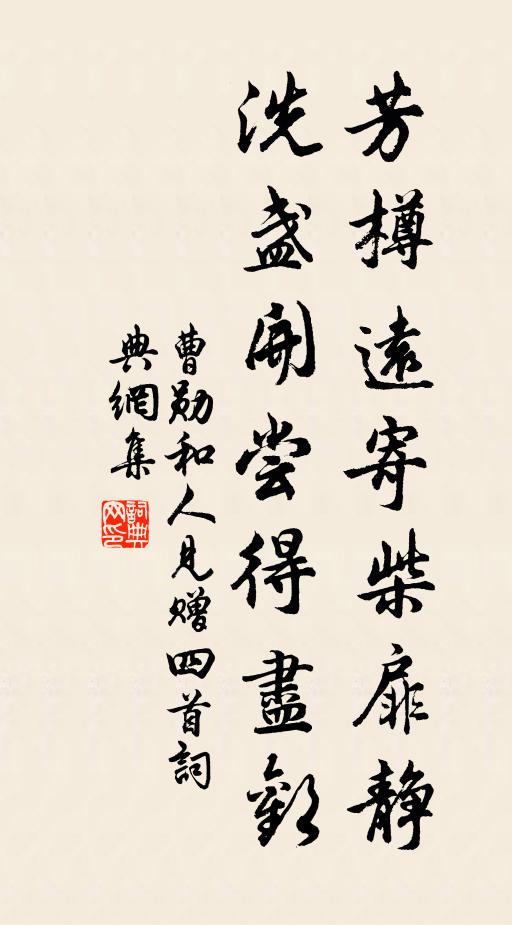 芳樽遠寄柴扉静
洗盏開尝得盡歡
曹勋和人見赠四首詞
典網集
詞典網印